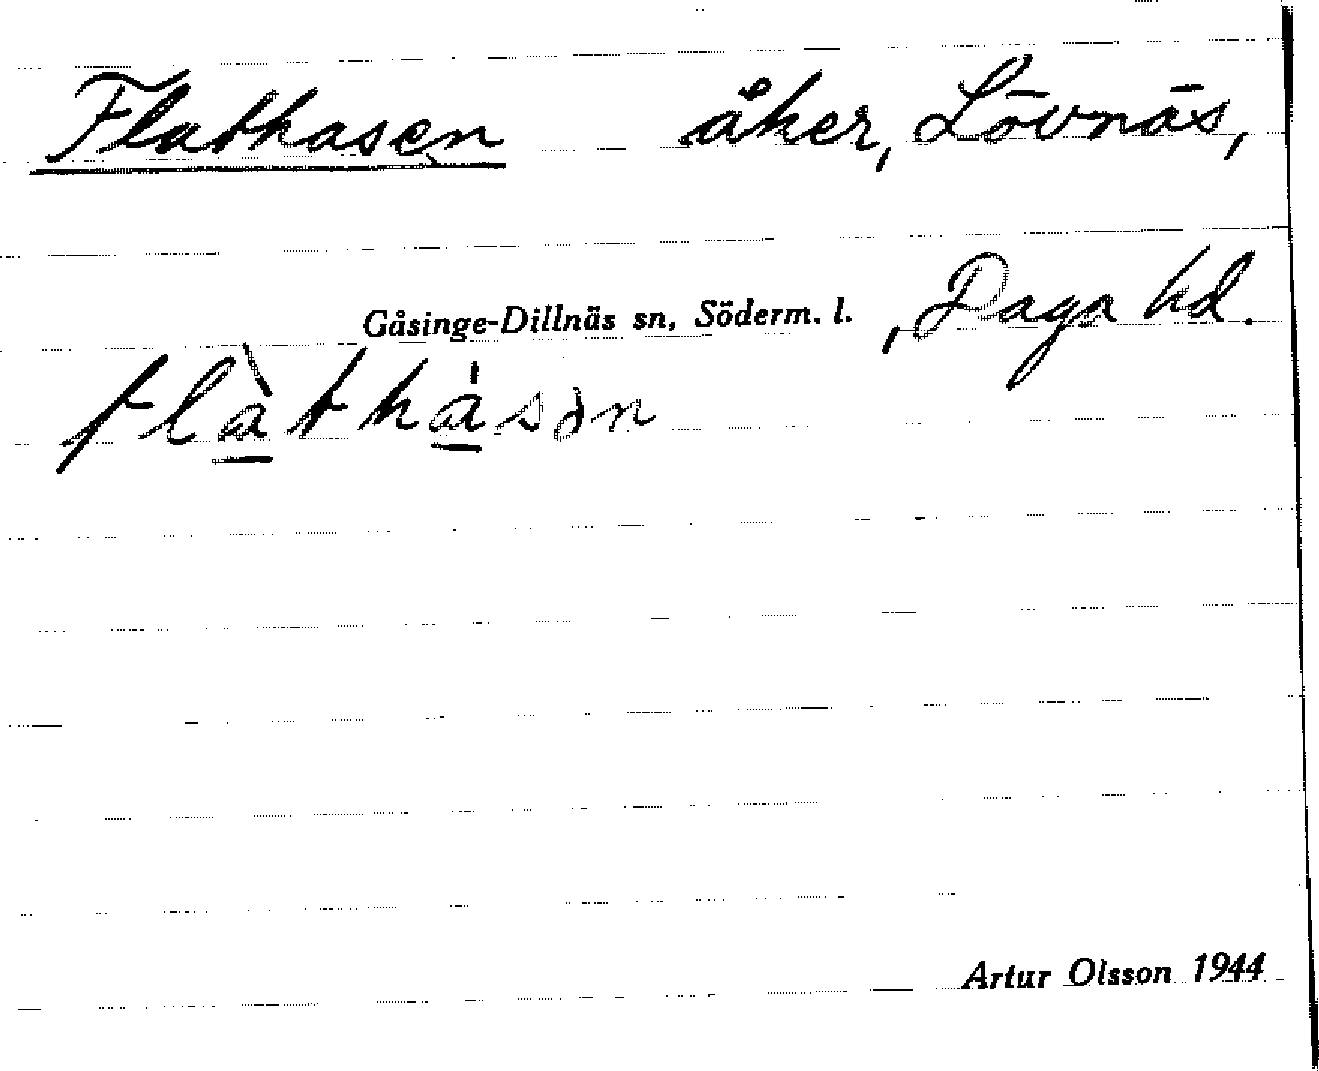 Flathasen åker, Lövnäs,
Gåsinge-Dillnäs sn, Söderm. l. , Daga hd.
flàthásən
Artur Olsson 1944